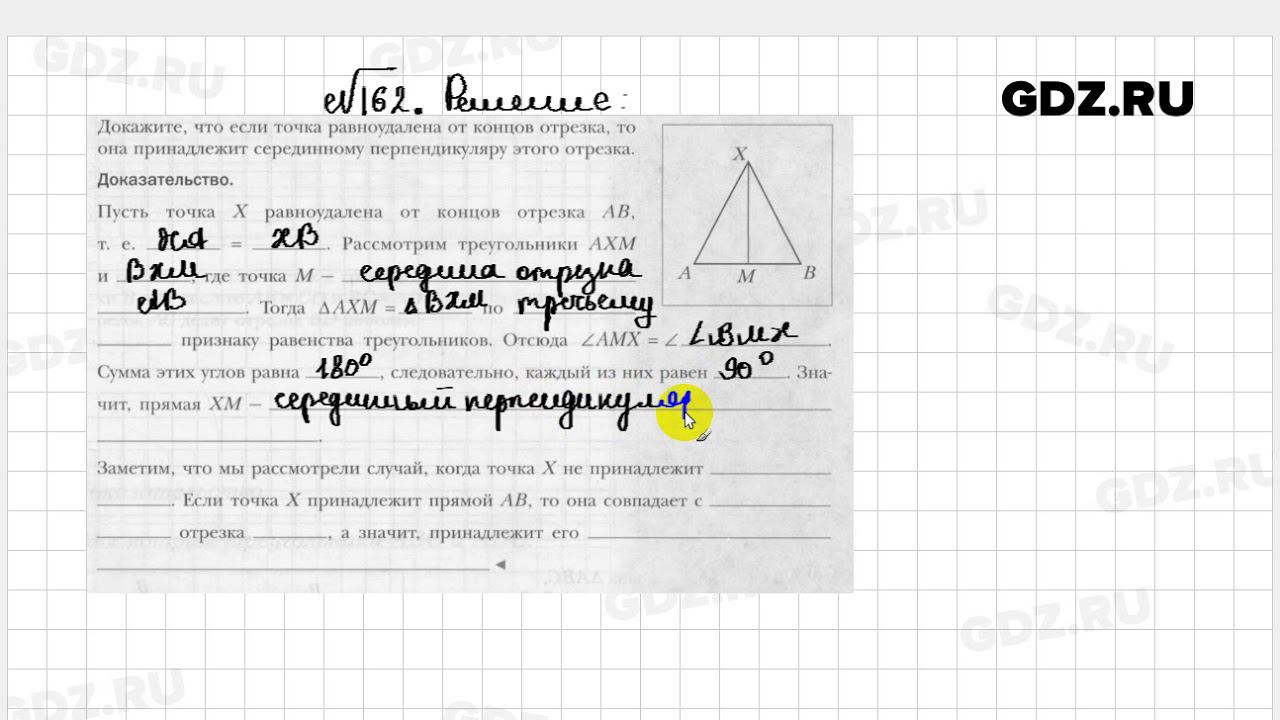 №162. Решение:
GDZ.RU
Докажите, что если точка равноудалена от концов отрезка, то
она принадлежит серединному перпендикуляру этого отрезка.
Доказательство.
Пусть точка X равноудалена от концов отрезка AB,
т. е. XA = XB. Рассмотрим треугольники AXM
и BXM, где точка M – середина отрезка
AB. Тогда ΔAXM = ΔBXM по третьему
признаку равенства треугольников. Отсюда ∠AMX = ∠ ∠BMX.
Сумма этих углов равна 180°, следовательно, каждый из них равен 90°. Зна-
чит, прямая XM – серединный перпендикуляр
.
Заметим, что мы рассмотрели случай, когда точка X не принадлежит
. Если точка X принадлежит прямой AB, то она совпадает с
отрезка , а значит, принадлежит его
X
A M B
GDZ.RU
GDZ.RU
GDZ.RU
GDZ.RU
GDZ.RU
GDZ.RU
GDZ.RU
GDZ.RU
GDZ.RU